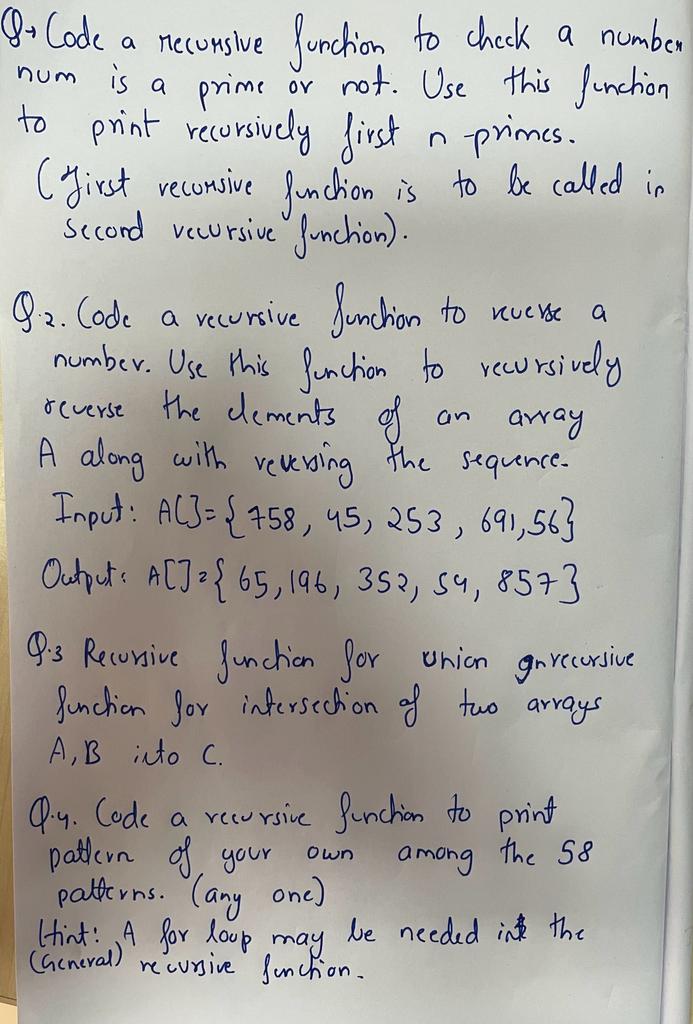 Q→ Code a recursive function to check a number
num is a prime or not. Use this function
to print recursively first n-primes.
(First recursive function is to be called in
second recursive function).
Q.2. Code a recursive function to reverse a
number. Use this function to recursively
reverse the elements of an array
A along with reversing the sequence.
Input: A[]={758, 45, 253, 691,56}
Output: A[]={65,196, 352, 54, 857}
Q.3 Recursive function for union recursive
function for intersection of two arrays
A,B into C.
Q.4. Code a recursive function to print
pattern of your own among the 58
patterns. (any one)
Hint: A for loop may be needed in the
(General) recursive function.